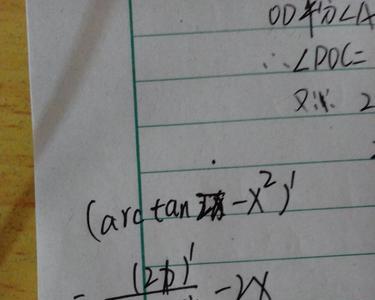 OD平分∠A
∴ ∠DOC=
又∵ 2
(arctan -x²)'
= (2)' -2x